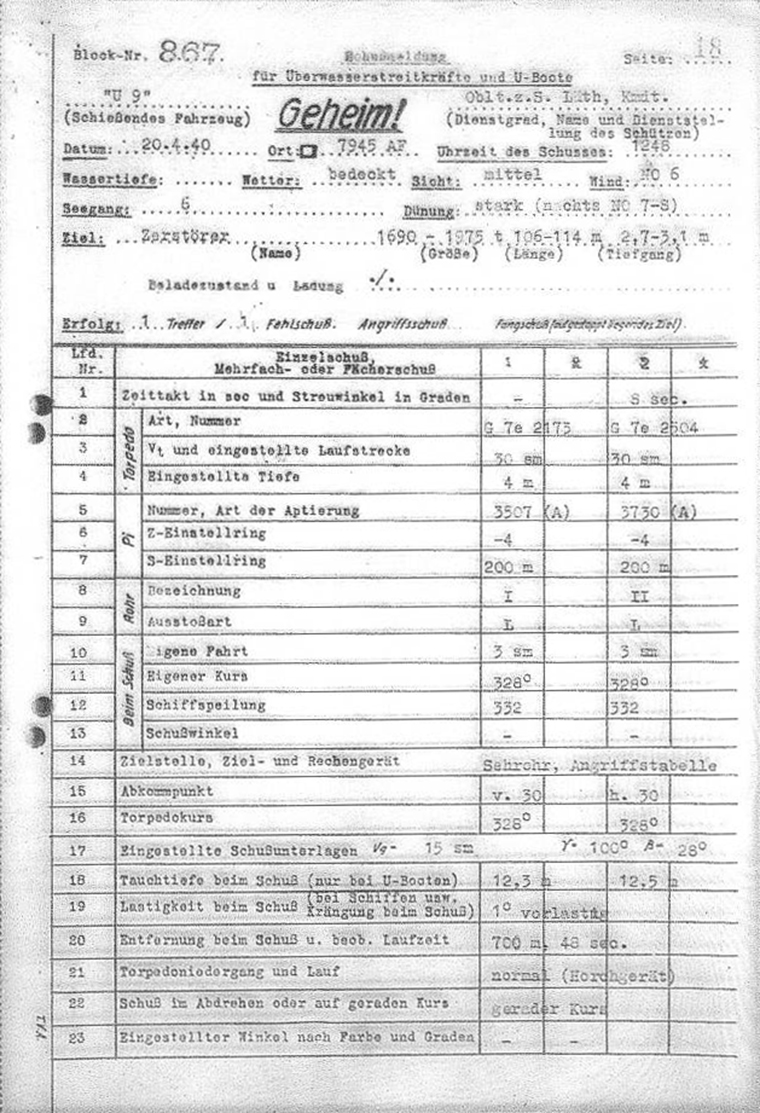 Block-Nr. 867. Schussmeldung Seite: 18
für Überwasserstreitkräfte und U-Boote
"U 9" Geheim! Oblt.z.S. Lüth, Kmdt.
(Schießendes Fahrzeug) (Dienstgrad, Name und Dienststel-
lung des Schützen)
Datum: 20.4.40 Ort: 7945 AF Uhrzeit des Schusses: 1248
Wassertiefe: Wetter: bedeckt Sicht: mittel Wind: NO 6
Seegang: 6 Dünung: stark (nachts NO 7-8)
Ziel: Zerstörer 1690 - 1975 t 106-114 m 2,7-3,1 m
(Name) (Größe) (Länge) (Tiefgang)
Beladezustand u Ladung ./.
Erfolg: 1 Treffer / 1 Fehlschuß. Angriffsschuß Fangschuß (auf gestoppt liegendes Ziel).
Lfd. Nr. Einzelschuß, 1 2 3 4
Mehrfach- oder Fächerschuß
1 Zeittakt in sec und Streuwinkel in Graden - 8 sec.
Torpedo
2 Art, Nummer G 7e 2173 G 7e 2504
3 Vt und eingestellte Laufstrecke 30 sm 30 sm
4 Eingestellte Tiefe 4 m 4 m
Pi
5 Nummer, Art der Aptierung 3507 (A) 3730 (A)
6 Z-Einstellring -4 -4
7 S-Einstellring 200 m 200 m
Rohr
8 Bezeichnung I II
9 Ausstoßart L L
Beim Schuß
10 Eigene Fahrt 3 sm 3 sm
11 Eigener Kurs 328° 328°
12 Schiffspeilung 332 332
13 Schußwinkel - -
14 Zielstelle, Ziel- und Rechengerät Sehrohr, Angriffstabelle
15 Abkommpunkt v. 30 h. 30
16 Torpedokurs 328° 328°
17 Eingestellte Schußunterlagen Vg- 15 sm γ- 100° β- 28°
18 Tauchtiefe beim Schuß (nur bei U-Booten) 12,3 m 12,5 m
19 Lastigkeit beim Schuß (bei Schiffen usw. Krängung beim Schuß) 1° vorlastig
20 Entfernung beim Schuß u. beob. Laufzeit 700 m, 48 sec.
21 Torpedoniedergang und Lauf normal (Horchgerät)
22 Schuß im Abdrehen oder auf geraden Kurs gerader Kurs
23 Eingestellter Winkel nach Farbe und Graden - -